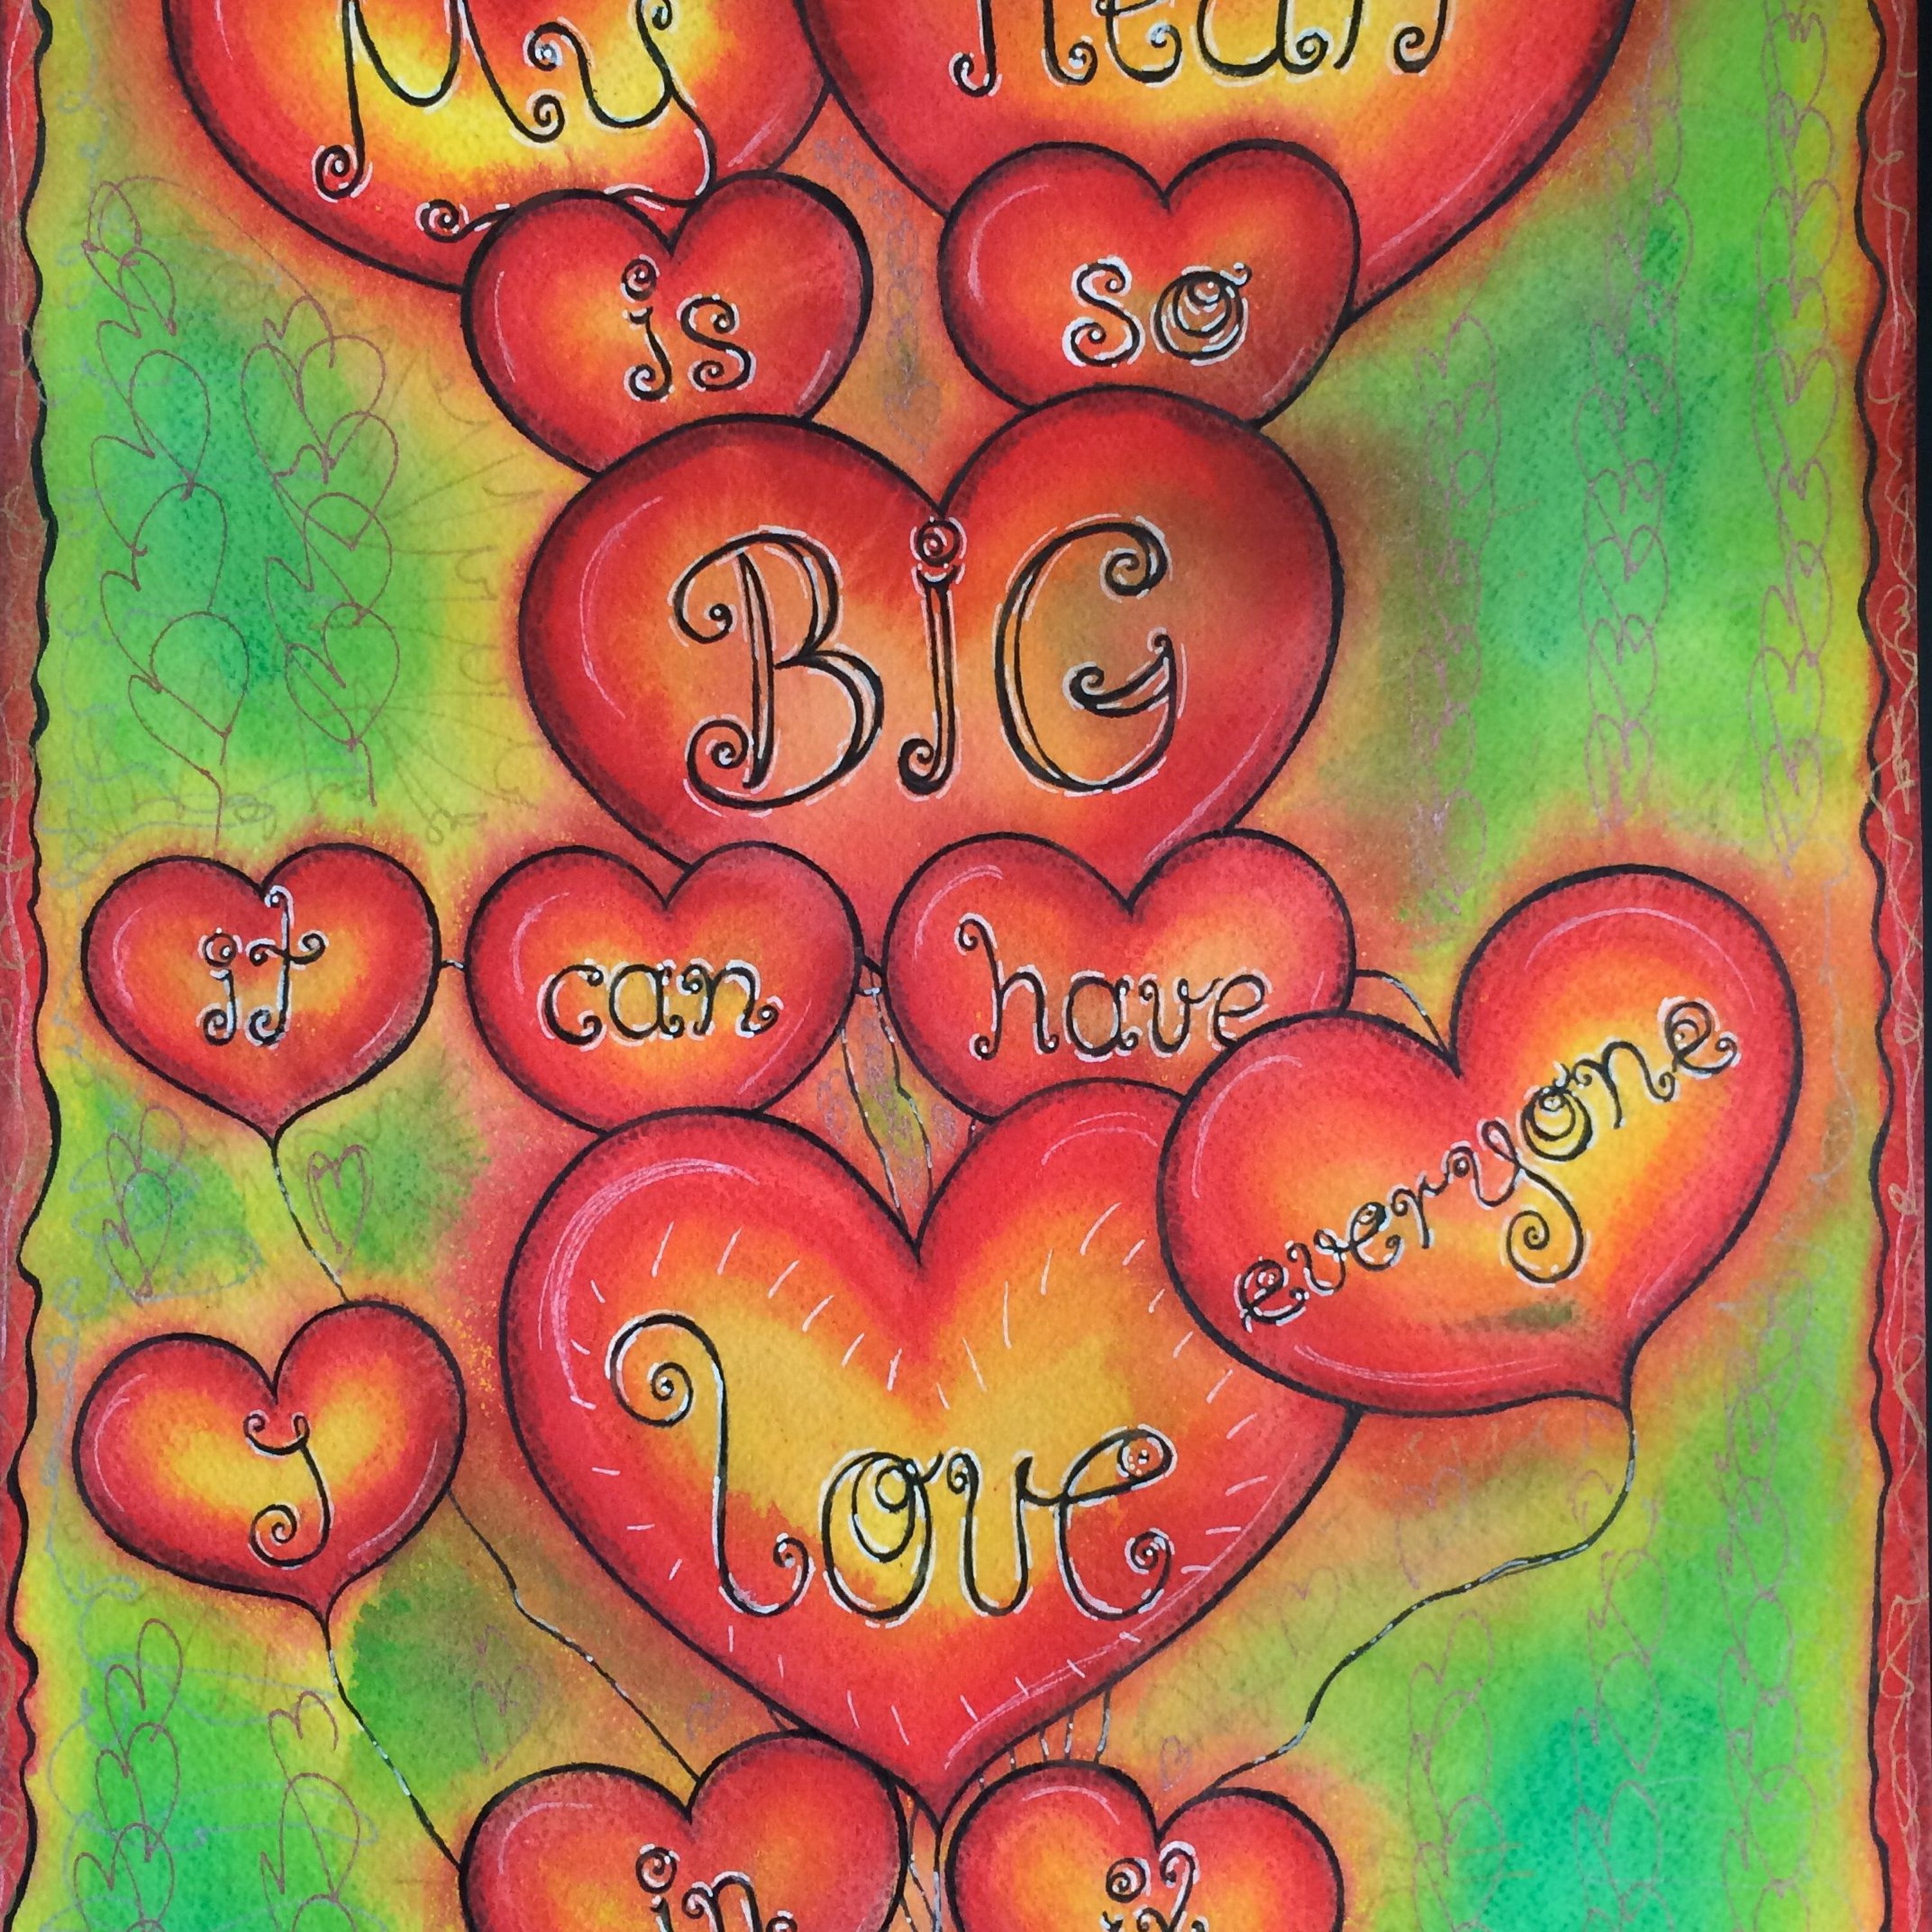 My heart
is so
BiG
it can have
everyone
I love
in it